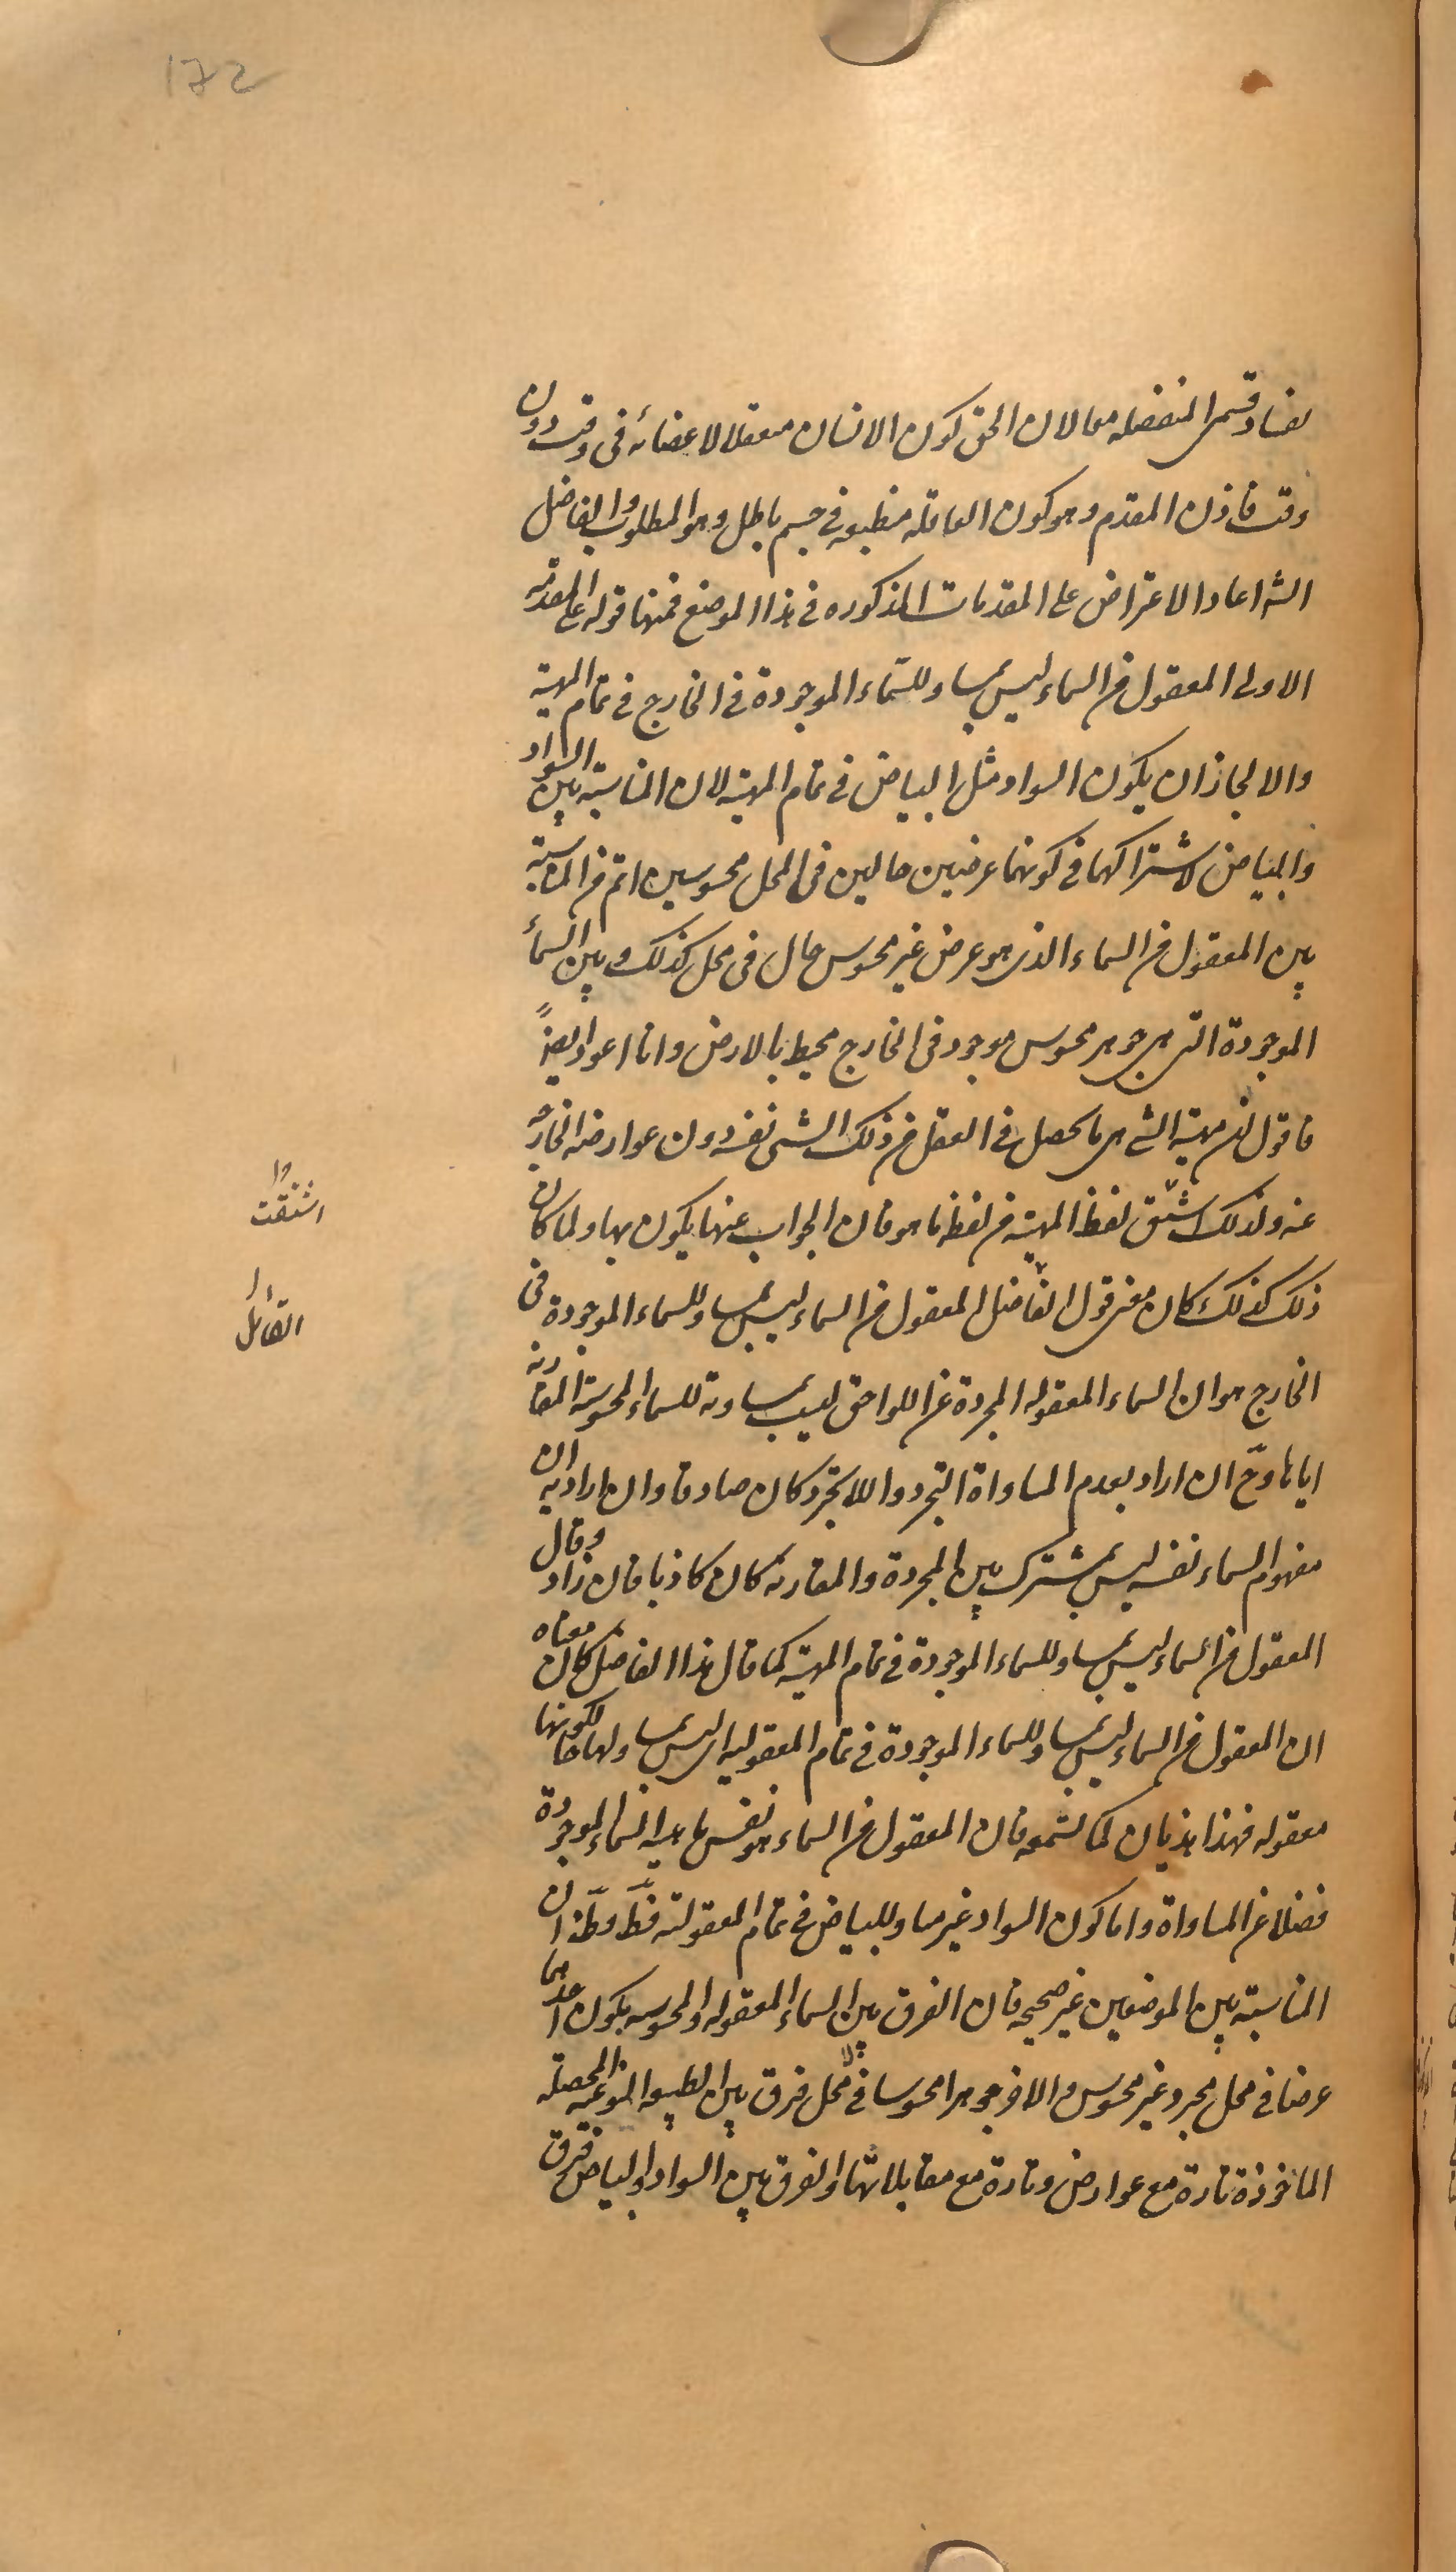 172
لفساد قسمى المنفصله معا لان الحق كون الانسان متعقلا لاعضائه فى وقت دون
وقت فاذن المقدم وهو كون العاقله منطبعه فى جسم باطل وهو المطلوب والفاضل
الشه اعاد الاعتراض على المقدمات المذكوره فى هذا الموضع فمنها قوله على المقدمه
الاولى المعقول من السماء ليس بمساو للسماء الموجودة فى الخارج فى تمام المهية
والا لجاز ان يكون السواد مثل البياض فى تمام المهية لان المناسبة بين السواد
والبياض لاشتراكهما فى كونهما عرضين حالين فى المحل محسوسين اتم من المناسبة
بين المعقول من السماء الذى هو عرض غير محسوس حال فى محل كذلك وبين السماء
الموجودة التى هى جوهر محسوس موجود فى الخارج محيط بالارض وانا اعود ايضاً
فاقول ان مهية الشى هى ما يحصل فى العقل من ذلك الشى نفسه دون عوارضه الخارجة
عنه ولذلك اشتق لفظ المهية من لفظ ما هو فان الجواب عنها يكون بها ولما كان
اشتقت
ذلك كذلك كان معنى قول الفاضل المعقول من السماء ليس بمساو للسماء الموجودة فى
القائل
الخارج هو ان السماء المعقوله المجردة عن اللواحق ليست بمساوية للسماء المحسوسة المقارنة
اياها وح ان اراد بعدم المساواة التجرد واللاتجرد كان صادقا وان اراد به ان
مفهوم السماء نفسه ليس بمشترك بين المجردة والمقارنة كان كاذبا فان زاد وقال
المعقول من السماء ليس بمساو للسماء الموجودة فى تمام المهية كما قال هذا الفاضل كان معناه
ان المعقول من السماء ليس بمساو للسماء الموجودة فى تمام المعقوليه اى ليس بمساو لها حال كونها
معقوله فهذا هذيان كما تسمعه فان المعقول من السماء هو نفس ماهية السماء الموجودة
فضلا عن المساواة واما كون السواد غير مساو للبياض فى تمام المعقولية فظ وظ ان
المناسبة بين الموضعين غير صحيحه فان الفرق بين السماء المعقوله والمحسوسه بكون احدهما
عرضا فى محل مجرد غير محسوس والاخر جوهرا محسوسا لا فى محل فرق بين الطبيعه النوعيه المحصله
الماخوذة تارة مع عوارض وتارة مع مقابلاتها والفرق بين السواد والبياض فرق